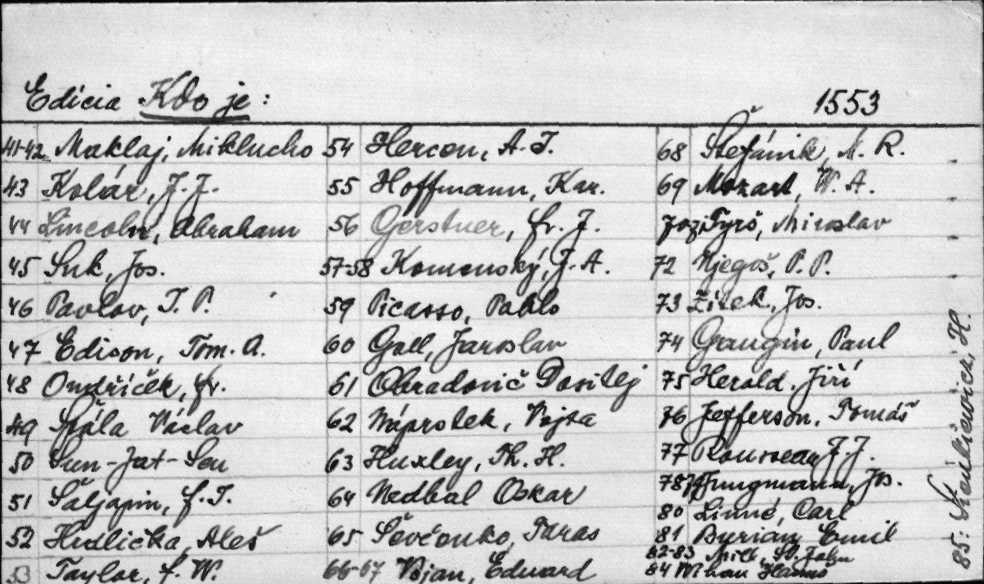 Edícia Kdo je: 1553
41-42 Maklaj, Miklucho
43 Kolár, J. J.
44 Lincoln, Abraham
45 Suk, Jos.
46 Pavlov, I. P.
47 Edison, Tom. A.
48 Ondříček, fr.
49 Špála Václav
50 Sun-Jat-Sen
51 Šaljapin, f. I.
52 Hrdlička, Aleš
53 Taylor, f. W.
54 Hercen, A. I.
55 Hoffmann, Kar.
56 Gerstner, fr. J.
57-58 Komenský, J. A.
59 Picasso, Pablo
60 Goll, Jaroslav
61 Obradovič Dositej
62 Náprstek, Vojta
63 Huxley, Th. H.
64 Nedbal Oskar
65 Ševčenko, Taras
66-67 Vojan, Eduard
68 Štefánik, M. R.
69 Mozart, W. A.
Tyrš, Miroslav
72 Njegoš, P. P.
73 Zítek, Jos.
74 Gaugin, Paul
75 Herold, Jiří
76 Jefferson, Tomáš
77 Rousseau J. J.
78 Jungmann, Jos.
80 Linné, Carl
81 Burian, Emil
82-83 Mill, St. John
84 Wihan Hanuš
85: H.